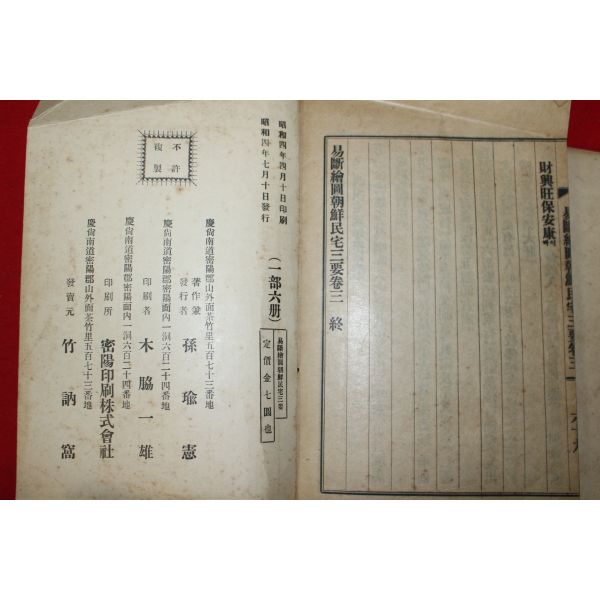 財興旺保安康
易斷繪圖朝鮮民宅三要卷三 終
昭和四年四月十日印刷
昭和四年七月十日發行
不許
複製
(一部六册)
易斷繪圖朝鮮民宅三要
定價金七圓也
慶尙南道密陽郡山外面茶竹里五百七十三番地
著作兼
發行者
孫瑜憲
慶尙南道密陽郡密陽面內一洞六百二十四番地
印刷者
木脇一雄
慶尙南道密陽郡密陽面內一洞六百二十四番地
印刷所
密陽印刷株式會社
慶尙南道密陽郡山外面茶竹里五百七十三番地
發賣元
竹訥窩